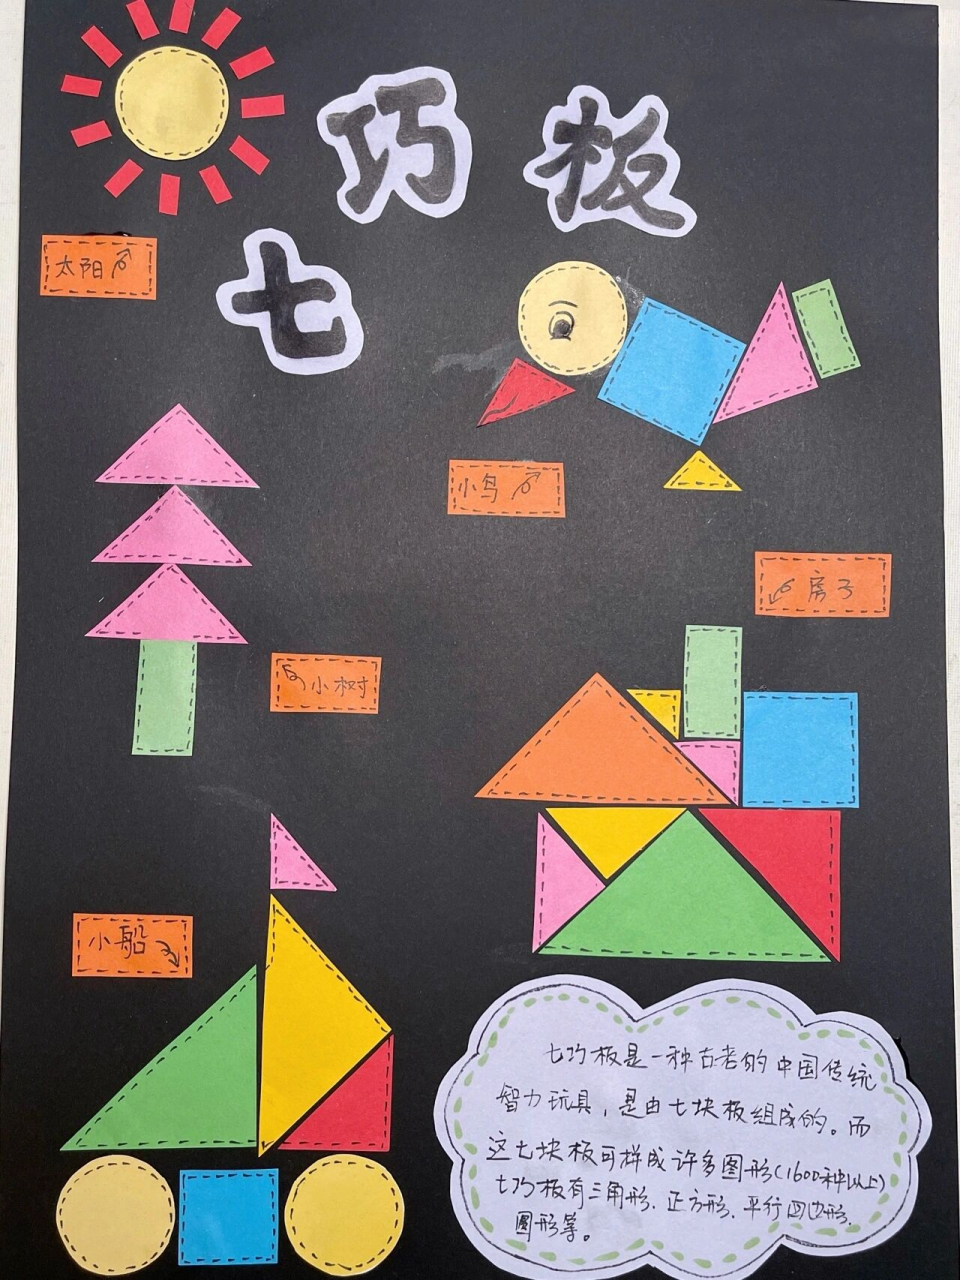 七巧板
太阳
小鸟
房子
小树
小船
七巧板是一种古老的中国传统
智力玩具，是由七块板组成的。而
这七块板可拼成许多图形(1600种以上)
七巧板有三角形、正方形、平行四边形、
圆形等。